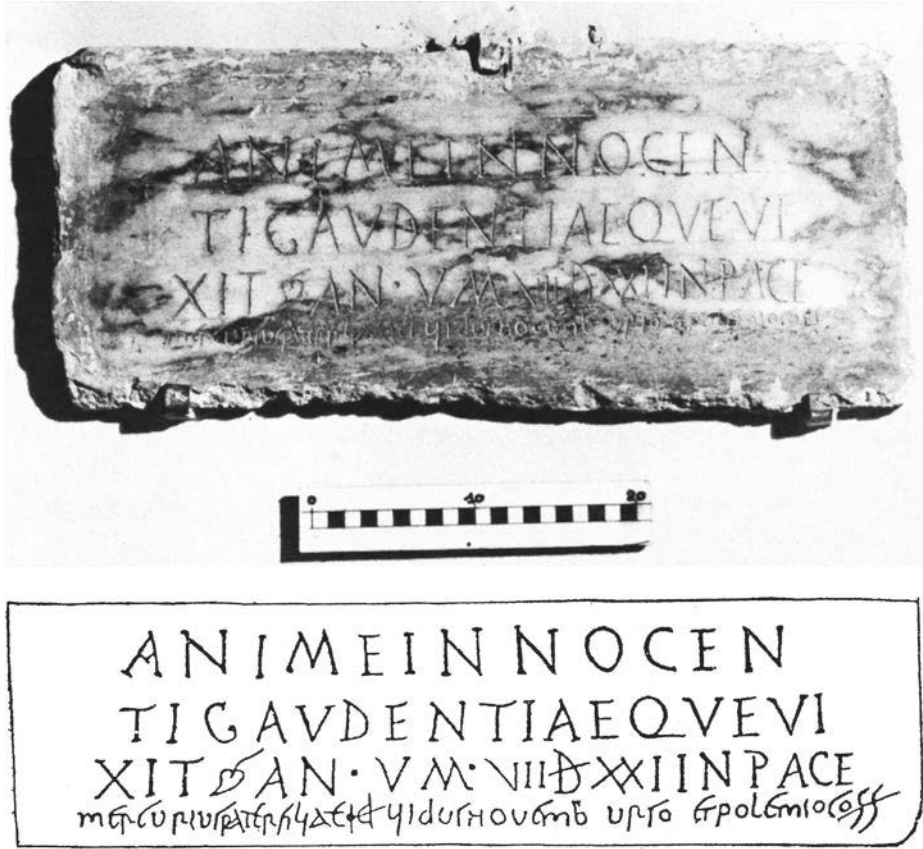 ANIMEINNOCEN
TIGAVDENTIAEQVEVI
XIT AN · V M VII D XXI IN PACE
0 10 20
ANIMEINNOCEN
TIGAVDENTIAEQVEVI
XIT AN · V M · VII D XXI IN PACE
mercurius pater filiae d VI idus nouemb urso et polemio coss